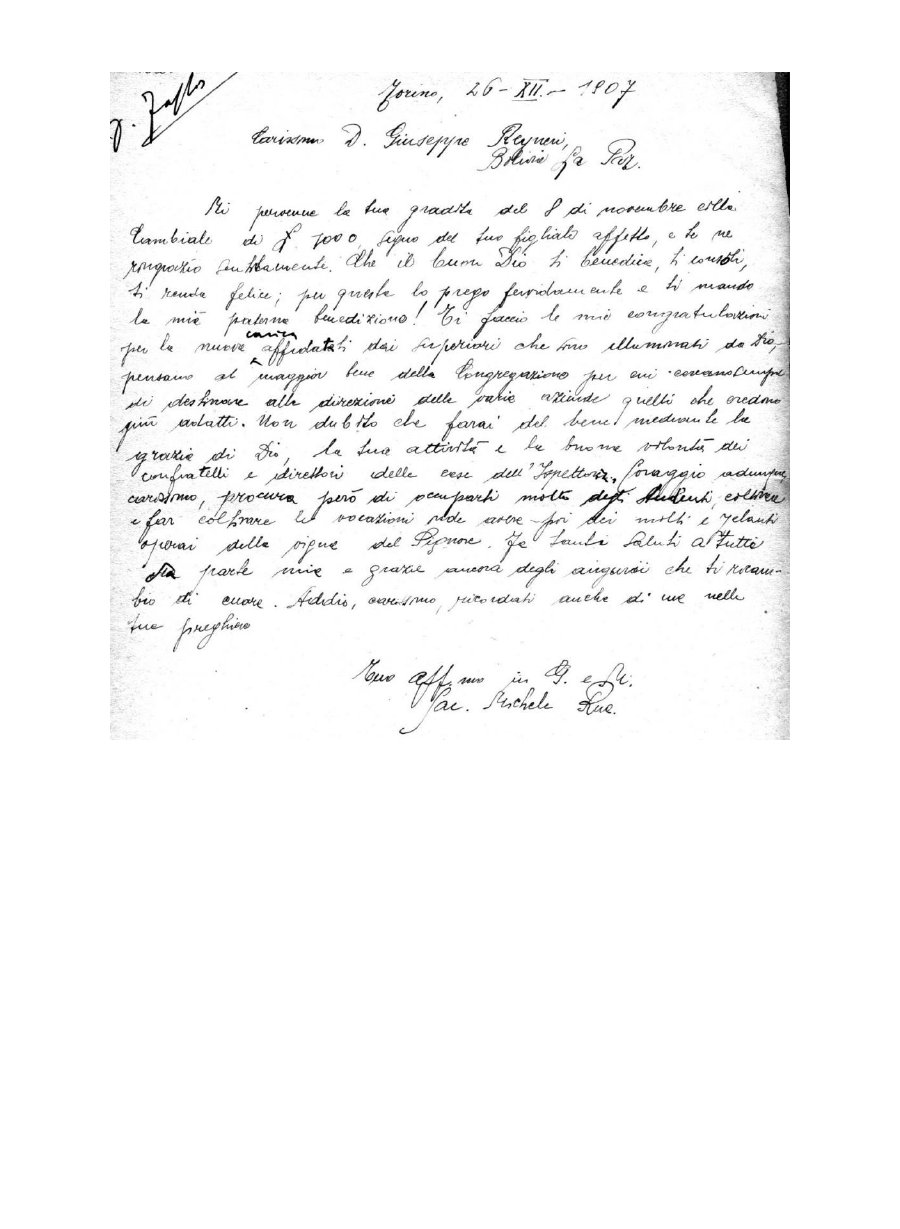 Torino, 26 - XII. - 1907
Carissimo D. Giuseppe Reyneri,
Bolivia La Paz.
Mi pervenne la tua gradita del 8 di novembre colla
Cambiale di 7000, segno del tuo figliale affetto, e te ne
ringrazio sentitamente. Che il buon Dio ti benedica, ti consoli,
ti renda felice; per questo lo prego fervidamente e ti mando
la mia paterna benedizione! Ti faccio le mie congratulazioni
per la nuova carica affidatati dai superiori che sono illuminati da Dio,
pensano al maggior bene della Congregazione per cui cercano sempre
di destinare alla direzione delle varie aziende quelli che credono
più adatti. Non dubito che farai del bene mediante la
grazia di Dio, la tua attività e la buona volontà dei
confratelli e direttori delle case dell'Ispettoria. Coraggio adunque,
carissimo, procura però di occuparti molto degli studenti, coltivare
e far coltivare le vocazioni avere poi dei molti e zelanti
operai della vigna del Signore. Fa tanti saluti a tutti
da parte mia e grazie ancora degli auguroii che ti ricam-
bio di cuore. Addio, carissimo, ricordati anche di me nelle
tue preghiere
Tuo aff.mo in G. e M.
Sac. Michele Rua.